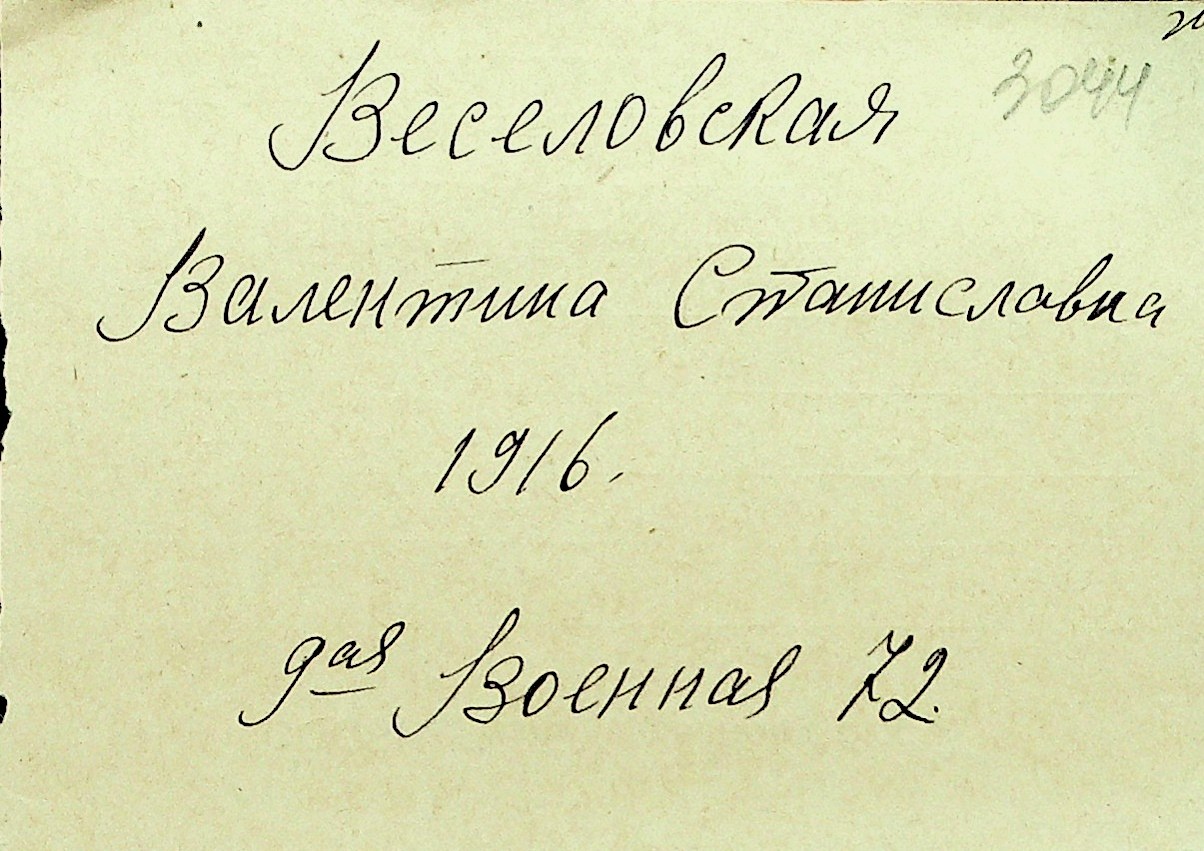 3044
Веселовская
Валентина Станиславна
1916.
9ая Военная 72.